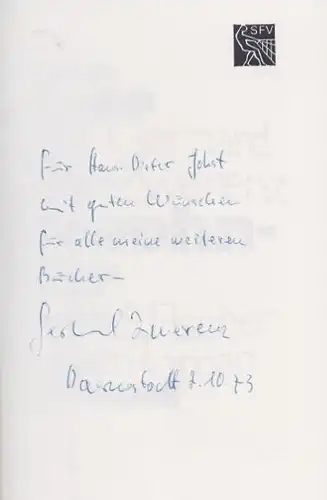 SFV
Für Hans-Dieter Jobst
mit guten Wünschen
für alle meine weiteren
Bücher –
Gerhard Zwerenz
Darmstadt 7.10.73